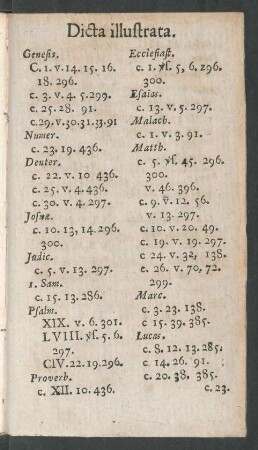 Dicta illustrata.
Genesis.
C. 1. v. 14. 15. 16.
18. 296.
c. 3. v. 4. 5. 299.
c. 25. 28. 91.
c. 29. v. 30. 31. 33. 91
Numer.
c. 23. 19. 436.
Deuter.
c. 22. v. 10 436
c. 25. v. 4. 436.
c. 30. v. 4. 297.
Josuæ.
c. 10. 13, 14. 296.
300.
Judic.
c. 5. v. 13. 297.
1. Sam.
c. 15. 13. 286.
Psalm.
XIX. v. 6. 301.
LVIII. ɏſ. 5. 6.
297.
CIV. 22. 19. 296.
Proverb.
c. XII. 10. 436.
Ecclesiast.
c. 1. ɏſ. 5, 6. 296.
300.
Esaias.
c. 13. v. 5. 297.
Malach.
c. 1. v. 3. 91.
Matth.
c. 5. ɏſ. 45. 296.
300.
v. 46. 396.
c. 9. v. 12. 56.
v. 13. 297.
c. 10. v. 20. 49.
c. 19. v. 19. 297.
c 24. v. 32, 138.
c. 26. v. 70, 72.
299.
Marc.
c. 3. 23. 138.
c 15. 39. 385.
Lucas.
c. 8. 12. 13. 285.
c. 14. 26. 91.
c. 20. 38. 385.
c. 23.